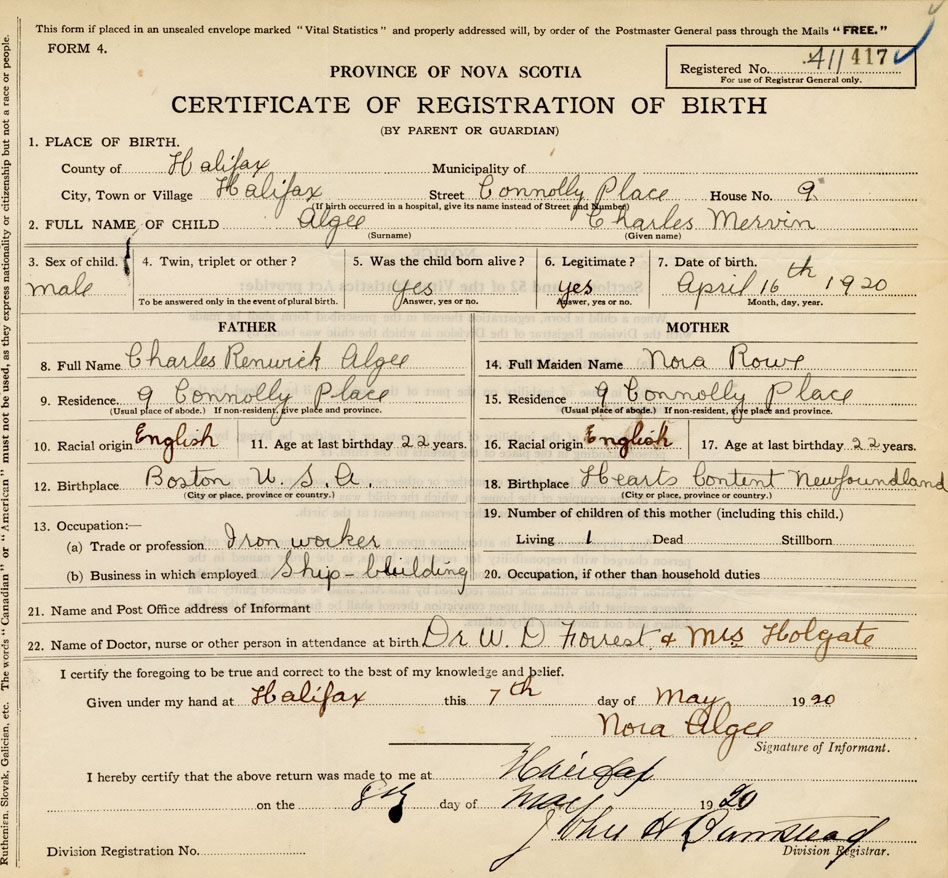 This form if placed in an unsealed envelope marked "Vital Statistics" and properly addressed will, by order of the Postmaster General pass through the Mails "FREE."
FORM 4.
Registered No. 411417
For use of Registrar General only.
PROVINCE OF NOVA SCOTIA
CERTIFICATE OF REGISTRATION OF BIRTH
(BY PARENT OR GUARDIAN)
1. PLACE OF BIRTH.
County of Halifax Municipality of
City, Town or Village Halifax Street Connolly Place House No. 9
(If birth occurred in a hospital, give its name instead of Street and Number)
2. FULL NAME OF CHILD Algee Charles Mervin
(Surname) (Given name)
3. Sex of child. 4. Twin, triplet or other? 5. Was the child born alive? 6. Legitimate? 7. Date of birth.
male yes yes April 16th 1920
To be answered only in the event of plural birth. Answer, yes or no. Answer, yes or no. Month, day, year.
FATHER MOTHER
8. Full Name Charles Renwick Algee 14. Full Maiden Name Nora Rowe
9. Residence. 9 Connolly Place 15. Residence 9 Connolly Place
(Usual place of abode.) If non-resident, give place and province. (Usual place of abode.) If non-resident, give place and province.
10. Racial origin English 11. Age at last birthday 22 years. 16. Racial origin English 17. Age at last birthday 22 years.
12. Birthplace Boston U. S. A. 18. Birthplace Hearts Content Newfoundland
(City or place, province or country.) (City or place, province or country.)
13. Occupation:— 19. Number of children of this mother (including this child.)
(a) Trade or profession Iron worker Living 1 Dead Stillborn
(b) Business in which employed Ship-building 20. Occupation, if other than household duties
21. Name and Post Office address of Informant
22. Name of Doctor, nurse or other person in attendance at birth Dr W. D Forrest & Mrs Holgate
I certify the foregoing to be true and correct to the best of my knowledge and belief.
Given under my hand at Halifax this 7th day of May 1920
Nora Algee
Signature of Informant.
I hereby certify that the above return was made to me at Halifax
on the 8th day of May 1920
John H Dumstead
Division Registration No. Division Registrar.
Ruthenian, Slovak, Galician, etc. The words "Canadian" or "American" must not be used, as they express nationality or citizenship but not a race or people.